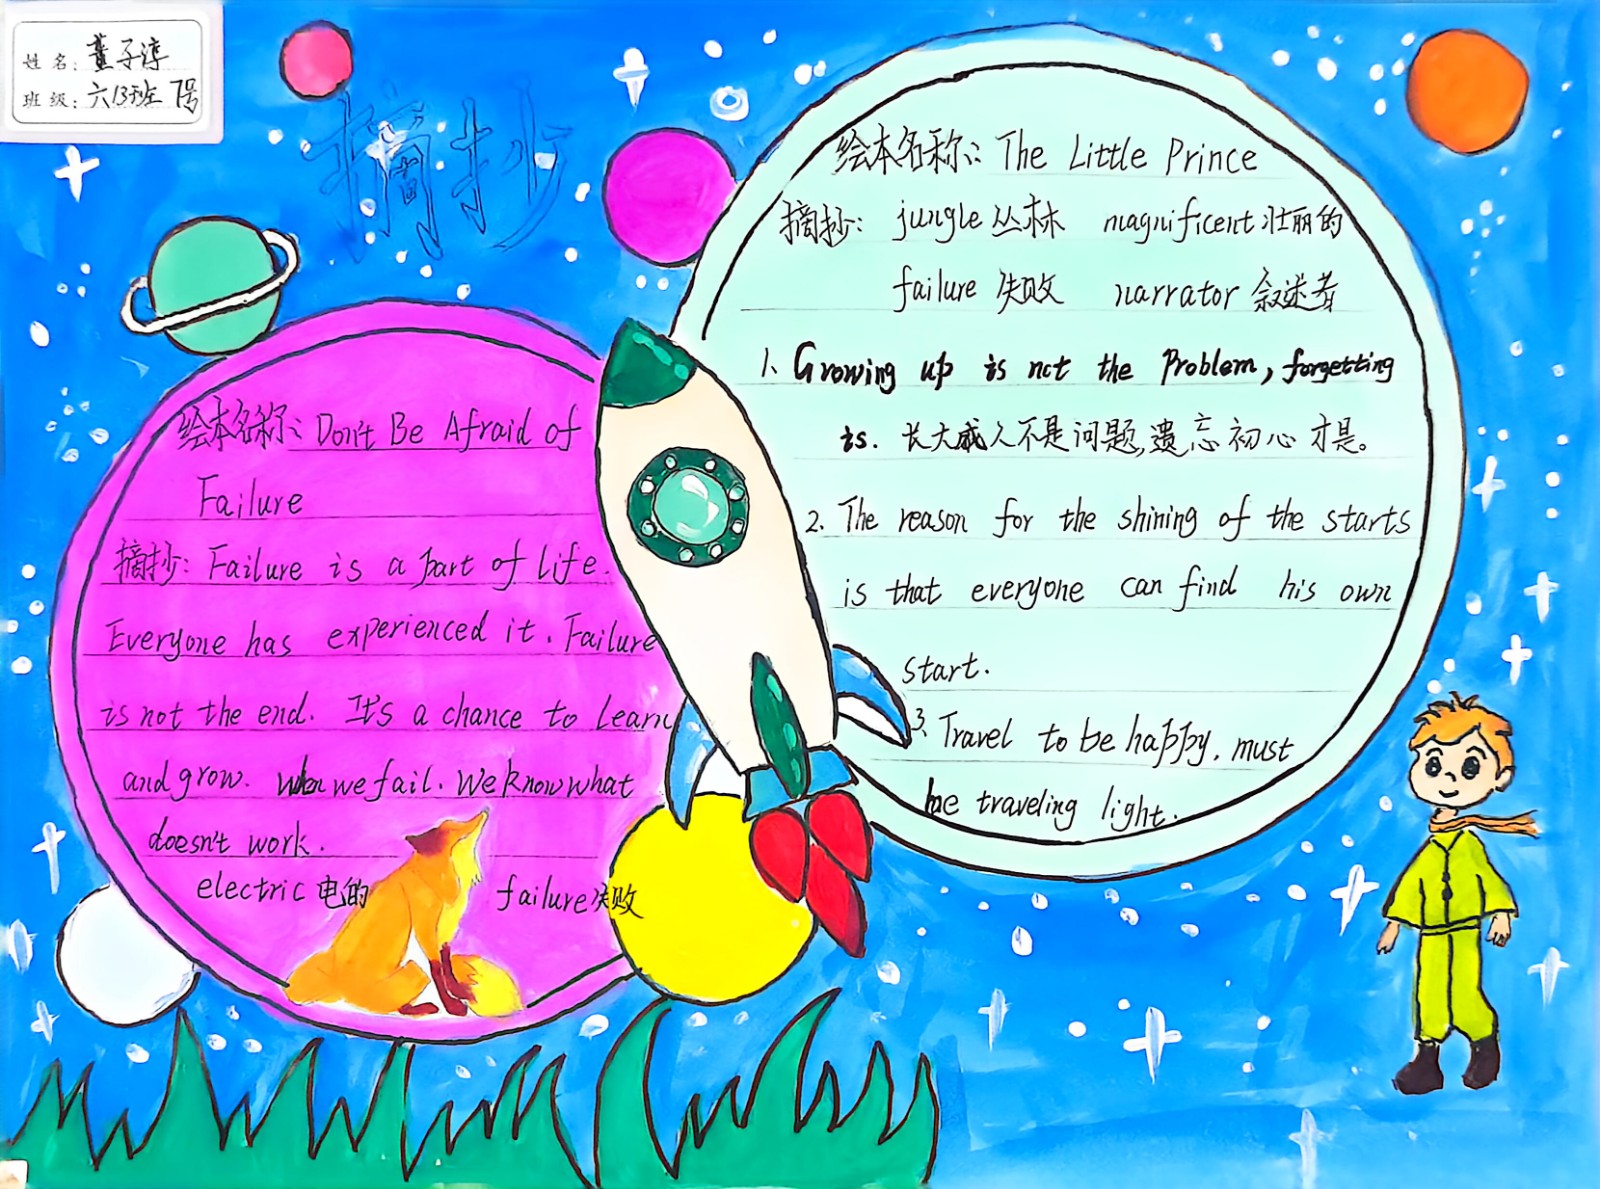 姓名：董子淳
班级：六13班 7号
摘抄
绘本名称：The Little Prince
摘抄：jungle 丛林 magnificent 壮丽的
failure 失败 narrator 叙述者
1、Growing up is not the Problem, forgetting
is. 长大成人不是问题,遗忘初心才是。
2. The reason for the shining of the starts
is that everyone can find his own
start.
3. Travel to be happy, must
be traveling light.
绘本名称：Don't Be Afraid of
Failure
摘抄：Failure is a part of life.
Everyone has experienced it. Failure
is not the end. It's a chance to learn
and grow. When we fail. We know what
doesn't work.
electric 电的 failure 失败